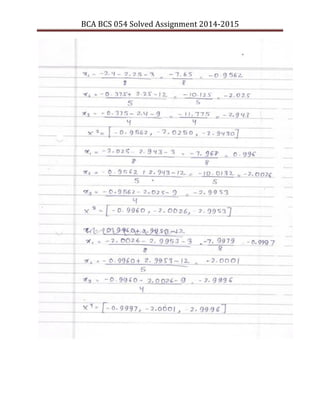 BCA BCS 054 Solved Assignment 2014-2015
x₁ = -2.4 - 2.25 - 3 = -7.65 = -0.9562
8 8
x₂ = -0.375 + 2.25 - 12 = -10.125 = -2.025
5 5
x₃ = -0.375 - 2.4 - 9 = -11.775 = -2.943
4 4
x² = [-0.9562, -2.0250, -2.9430]
x₁ = -2.025 - 2.943 - 3 = -7.968 = 0.996
8 8
x₂ = -0.9562 + 2.943 - 12 = -10.0132 = -2.0026
5 5
x₃ = -0.9562 - 2.025 - 9 = -2.9953
4
x³ = [-0.9960, -2.0026, -2.9953]
x₁ = -2.0026 - 2.9953 - 3 = -7.9979 = -0.9997
8 8
x₂ = -0.9960 + 2.9953 - 12 = -2.0001
5
x₃ = -0.9960 - 2.0026 - 9 = -2.9996
4
x⁴ = [-0.9997, -2.0001, -2.9996]